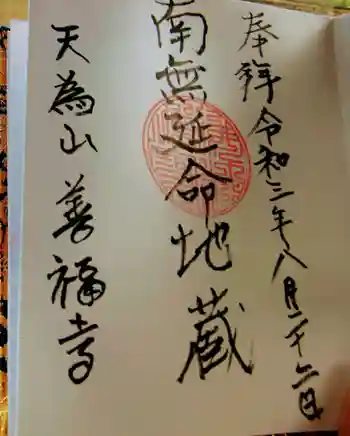 奉拜 令和三年八月二十六日
南無延命地蔵
天為山 善福寺